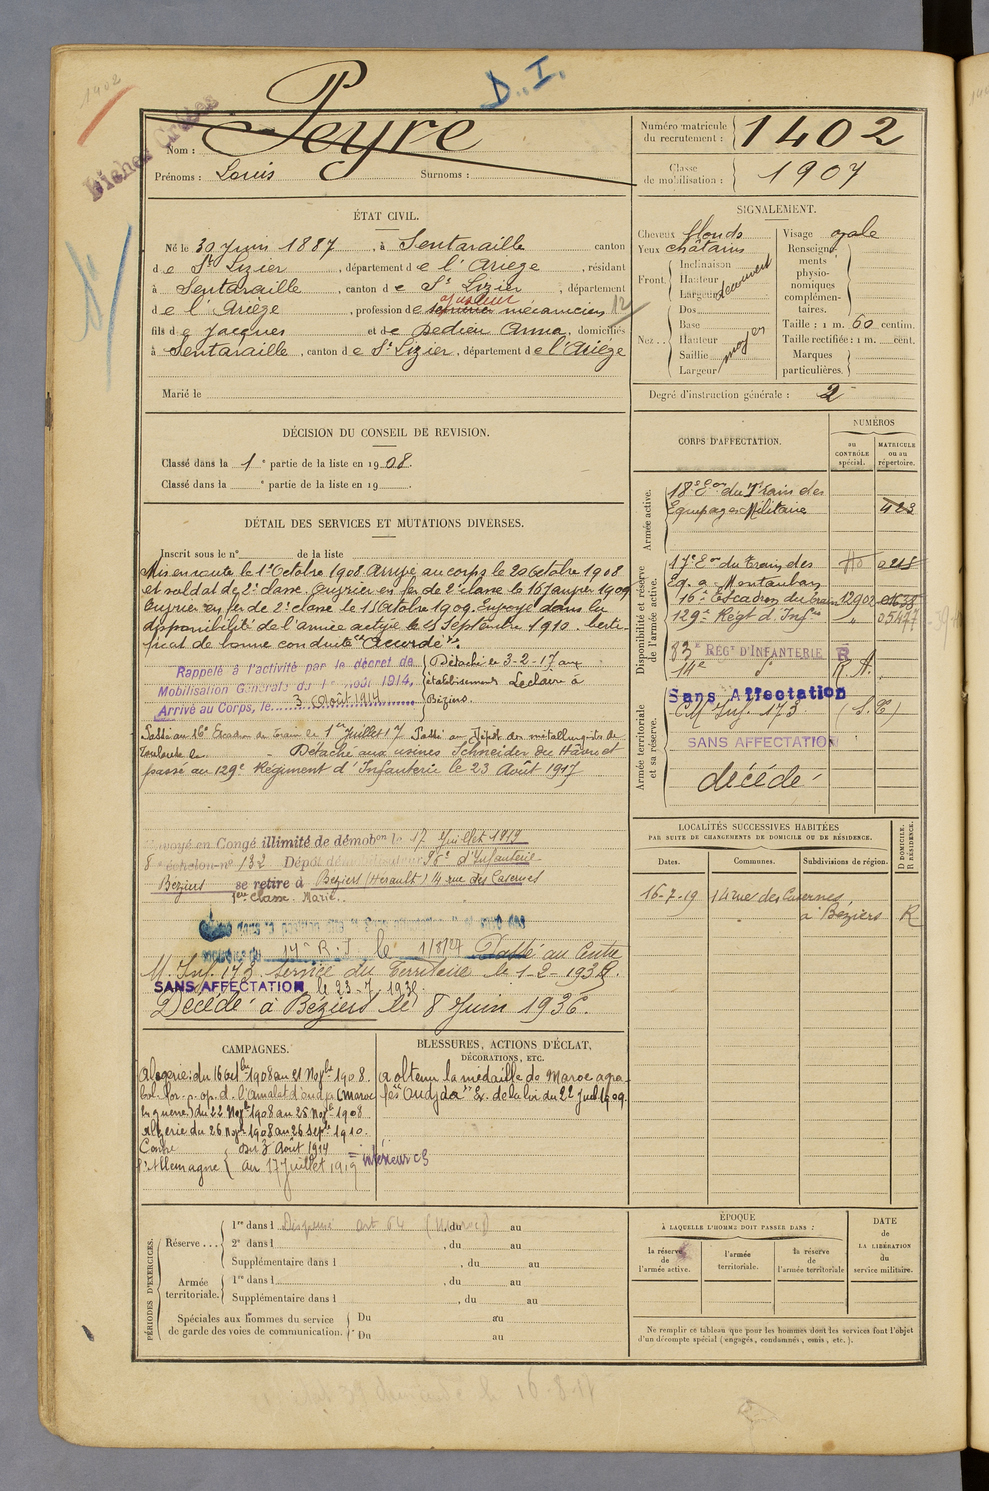 1402
D. I.
Fiches Croisées
Nom : Peyre
Prénoms : Louis Surnoms :
Numéro matricule du recrutement : 1402
Classe de mobilisation : 1907
ÉTAT CIVIL.
Né le 30 Juin 1887, à Sentaraille canton
de St Lizier, département de l'Ariège, résidant
à Sentaraille, canton de St Lizier, département
de l'Ariège, profession de serrurier ajusteur mécanicien 12
fils de Jacques et de Dedieu Anna, domiciliés
à Sentaraille, canton de St Lizier, département de l'Ariège
Marié le
SIGNALEMENT.
Cheveux blonds Visage ovale
Yeux châtains
Front Inclinaison Hauteur Largeur découvert
Nez Dos Base Hauteur Saillie Largeur moyen
Renseignements physionomiques complémentaires.
Taille : 1 m. 60 centim.
Taille rectifiée : 1 m. cent.
Marques particulières.
Degré d'instruction générale : 2
DÉCISION DU CONSEIL DE REVISION.
Classé dans la 1e partie de la liste en 1908.
Classé dans la e partie de la liste en 19 .
DÉTAIL DES SERVICES ET MUTATIONS DIVERSES.
Inscrit sous le n° de la liste
Mis en route le 1er Octobre 1908. Arrivé au corps le 20 Octobre 1908
et soldat de 2e classe. Ouvrier en fer de 2e classe le 16 Janvier 1909
Ouvrier en fer de 2e classe le 15 Octobre 1909. Envoyé dans la
disponibilité de l'armée active le 25 Septembre 1910. Certi-
ficat de bonne conduite "Accordé".
Rappelé à l'activité par le décret de
Mobilisation Générale du 1er Août 1914,
Arrivé au Corps, le 3 Août 1914
Détaché le 3-2-17 aux
établissements Leclaire à
Béziers.
Passé au 16e Escadron du Train le 1er Juillet 17 Passé au Dépôt des métallurgistes de
Toulouse le Détaché aux usines Schneider du Hâvre et
passé au 129e Régiment d'Infanterie le 23 Août 1917
Envoyé en Congé illimité de démobon le 17 Juillet 1919
8e échelon n° 132 Dépôt démobilisateur 96e d'Infanterie
Béziers se retire à Béziers (Hérault) 14 rue des Casernes
Marié.
Classé dans la position dite "Sans affectation"
14e R. I. le 1/8/27 Passé au Centre
M. Inf. 173 service du Territoire le
SANS AFFECTATION le 23-7
Décédé à Béziers le 8 Juin 1936.
CORPS D'AFFECTATION.
NUMÉROS
au CONTRÔLE spécial.
MATRICULE ou au répertoire.
Armée active.
18e Eon du Train des
Equipages Militaire 423
Disponibilité et réserve de l'armée active.
17e Eon du Train des
Eq. à Montauban
16e Escadron du train 12902
129e Régt d'Infrie 05477
83e RÉGT D'INFANTERIE R
14e do R. A.
Armée territoriale et sa réserve.
Sans Affectation
CM Inf. 173
SANS AFFECTATION
décédé
LOCALITÉS SUCCESSIVES HABITÉES
PAR SUITE DE CHANGEMENTS DE DOMICILE OU DE RÉSIDENCE.
Dates. Communes. Subdivisions de région. D DOMICILE. R RÉSIDENCE.
16-7-19 14 rue des Casernes,
à Béziers R
CAMPAGNES.
Algérie : du 16 Octbre 1908 au 21 Novbre 1908.
Col. For. op. d. l'amalat d'oudja (Maroc
En guerre) du 22 Novbre 1908 au 25 Novbre 1908
Algérie du 26 Novbre 1908 au 26 Septbre 1910.
Contre l'Allemagne du 3 Août 1914
au 17 Juillet 1919 = intérieur CS
BLESSURES, ACTIONS D'ÉCLAT,
DÉCORATIONS, ETC.
A obtenu la médaille du Maroc agra-
fe "Oudjda" Ex. de la loi du 22 Juillet 09.
PÉRIODES D'EXERCICES.
Réserve
1re dans l Dispensé art 64 (Maroc), du au
2e dans l , du au
Supplémentaire dans l , du au
Armée territoriale.
1re dans l , du au
Supplémentaire dans l , du au
Spéciales aux hommes du service de garde des voies de communication.
Du au
Du au
ÉPOQUE
À LAQUELLE L'HOMME DOIT PASSER DANS :
la réserve de l'armée active.
l'armée territoriale.
la réserve de l'armée territoriale
DATE de LA LIBÉRATION du service militaire.
Ne remplir ce tableau que pour les hommes dont les services font l'objet
d'un décompte spécial (engagés, condamnés, omis, etc.).